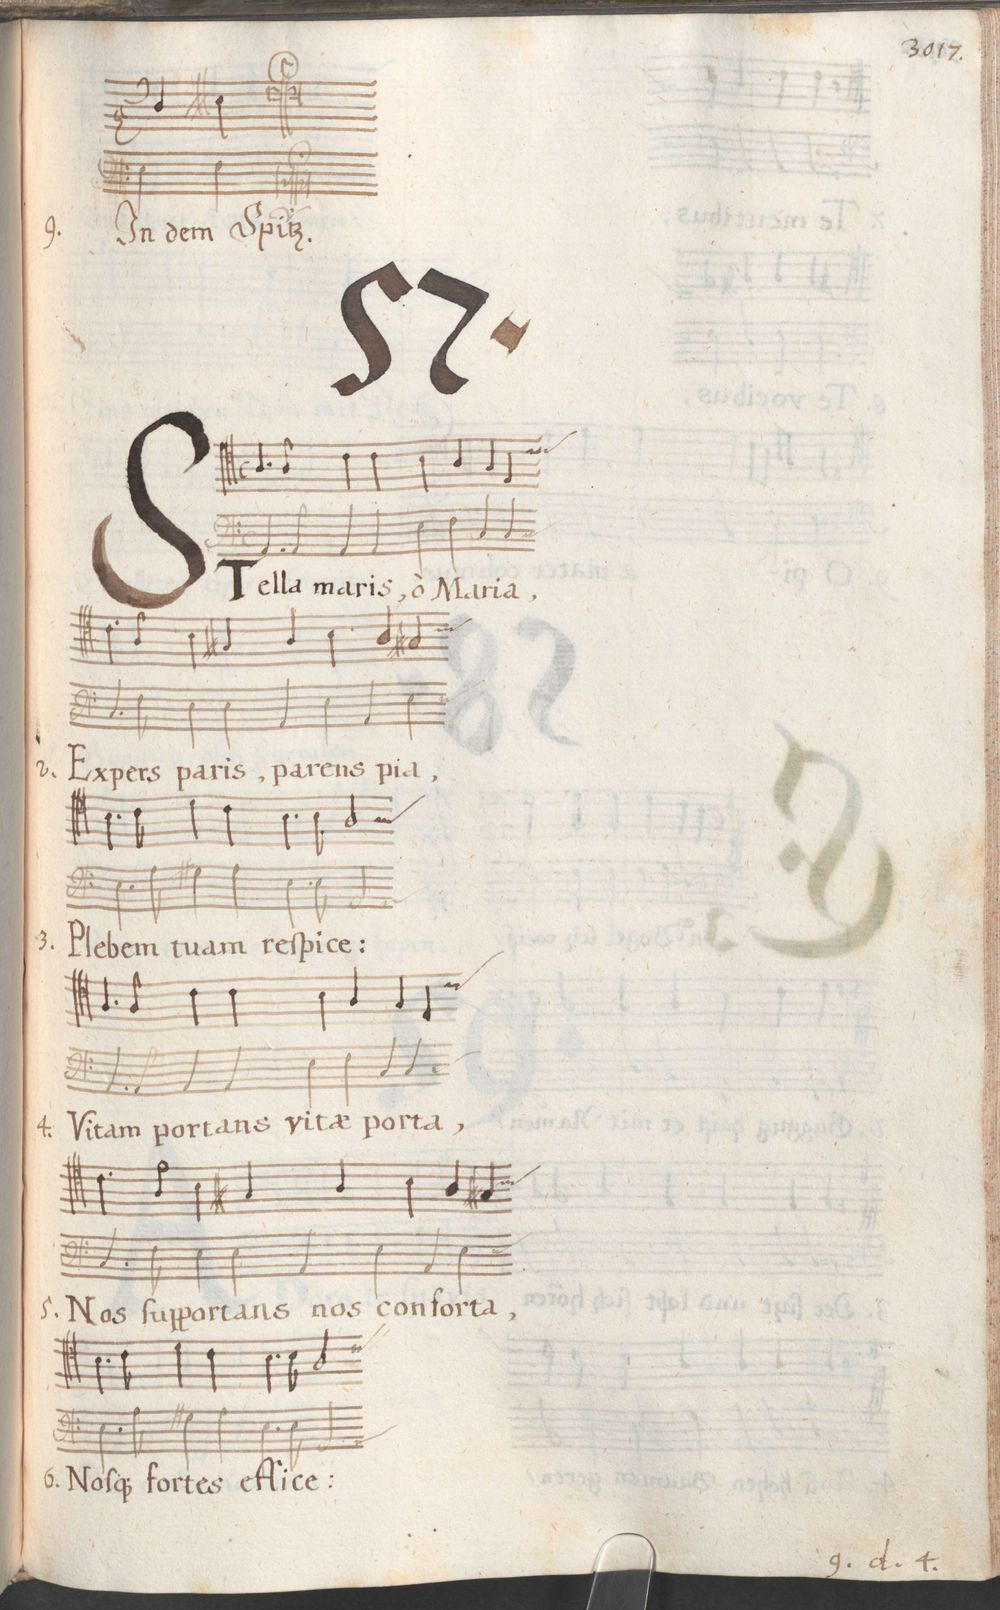 3017.
9. In dem Spitz.
57.
STella maris, ò Maria,
2. Expers paris, parens pia,
3. Plebem tuam reſpice:
4. Vitam portans vitæ porta,
5. Nos ſupportans nos conforta,
6. Noſq; fortes effice:
9. d. 4.